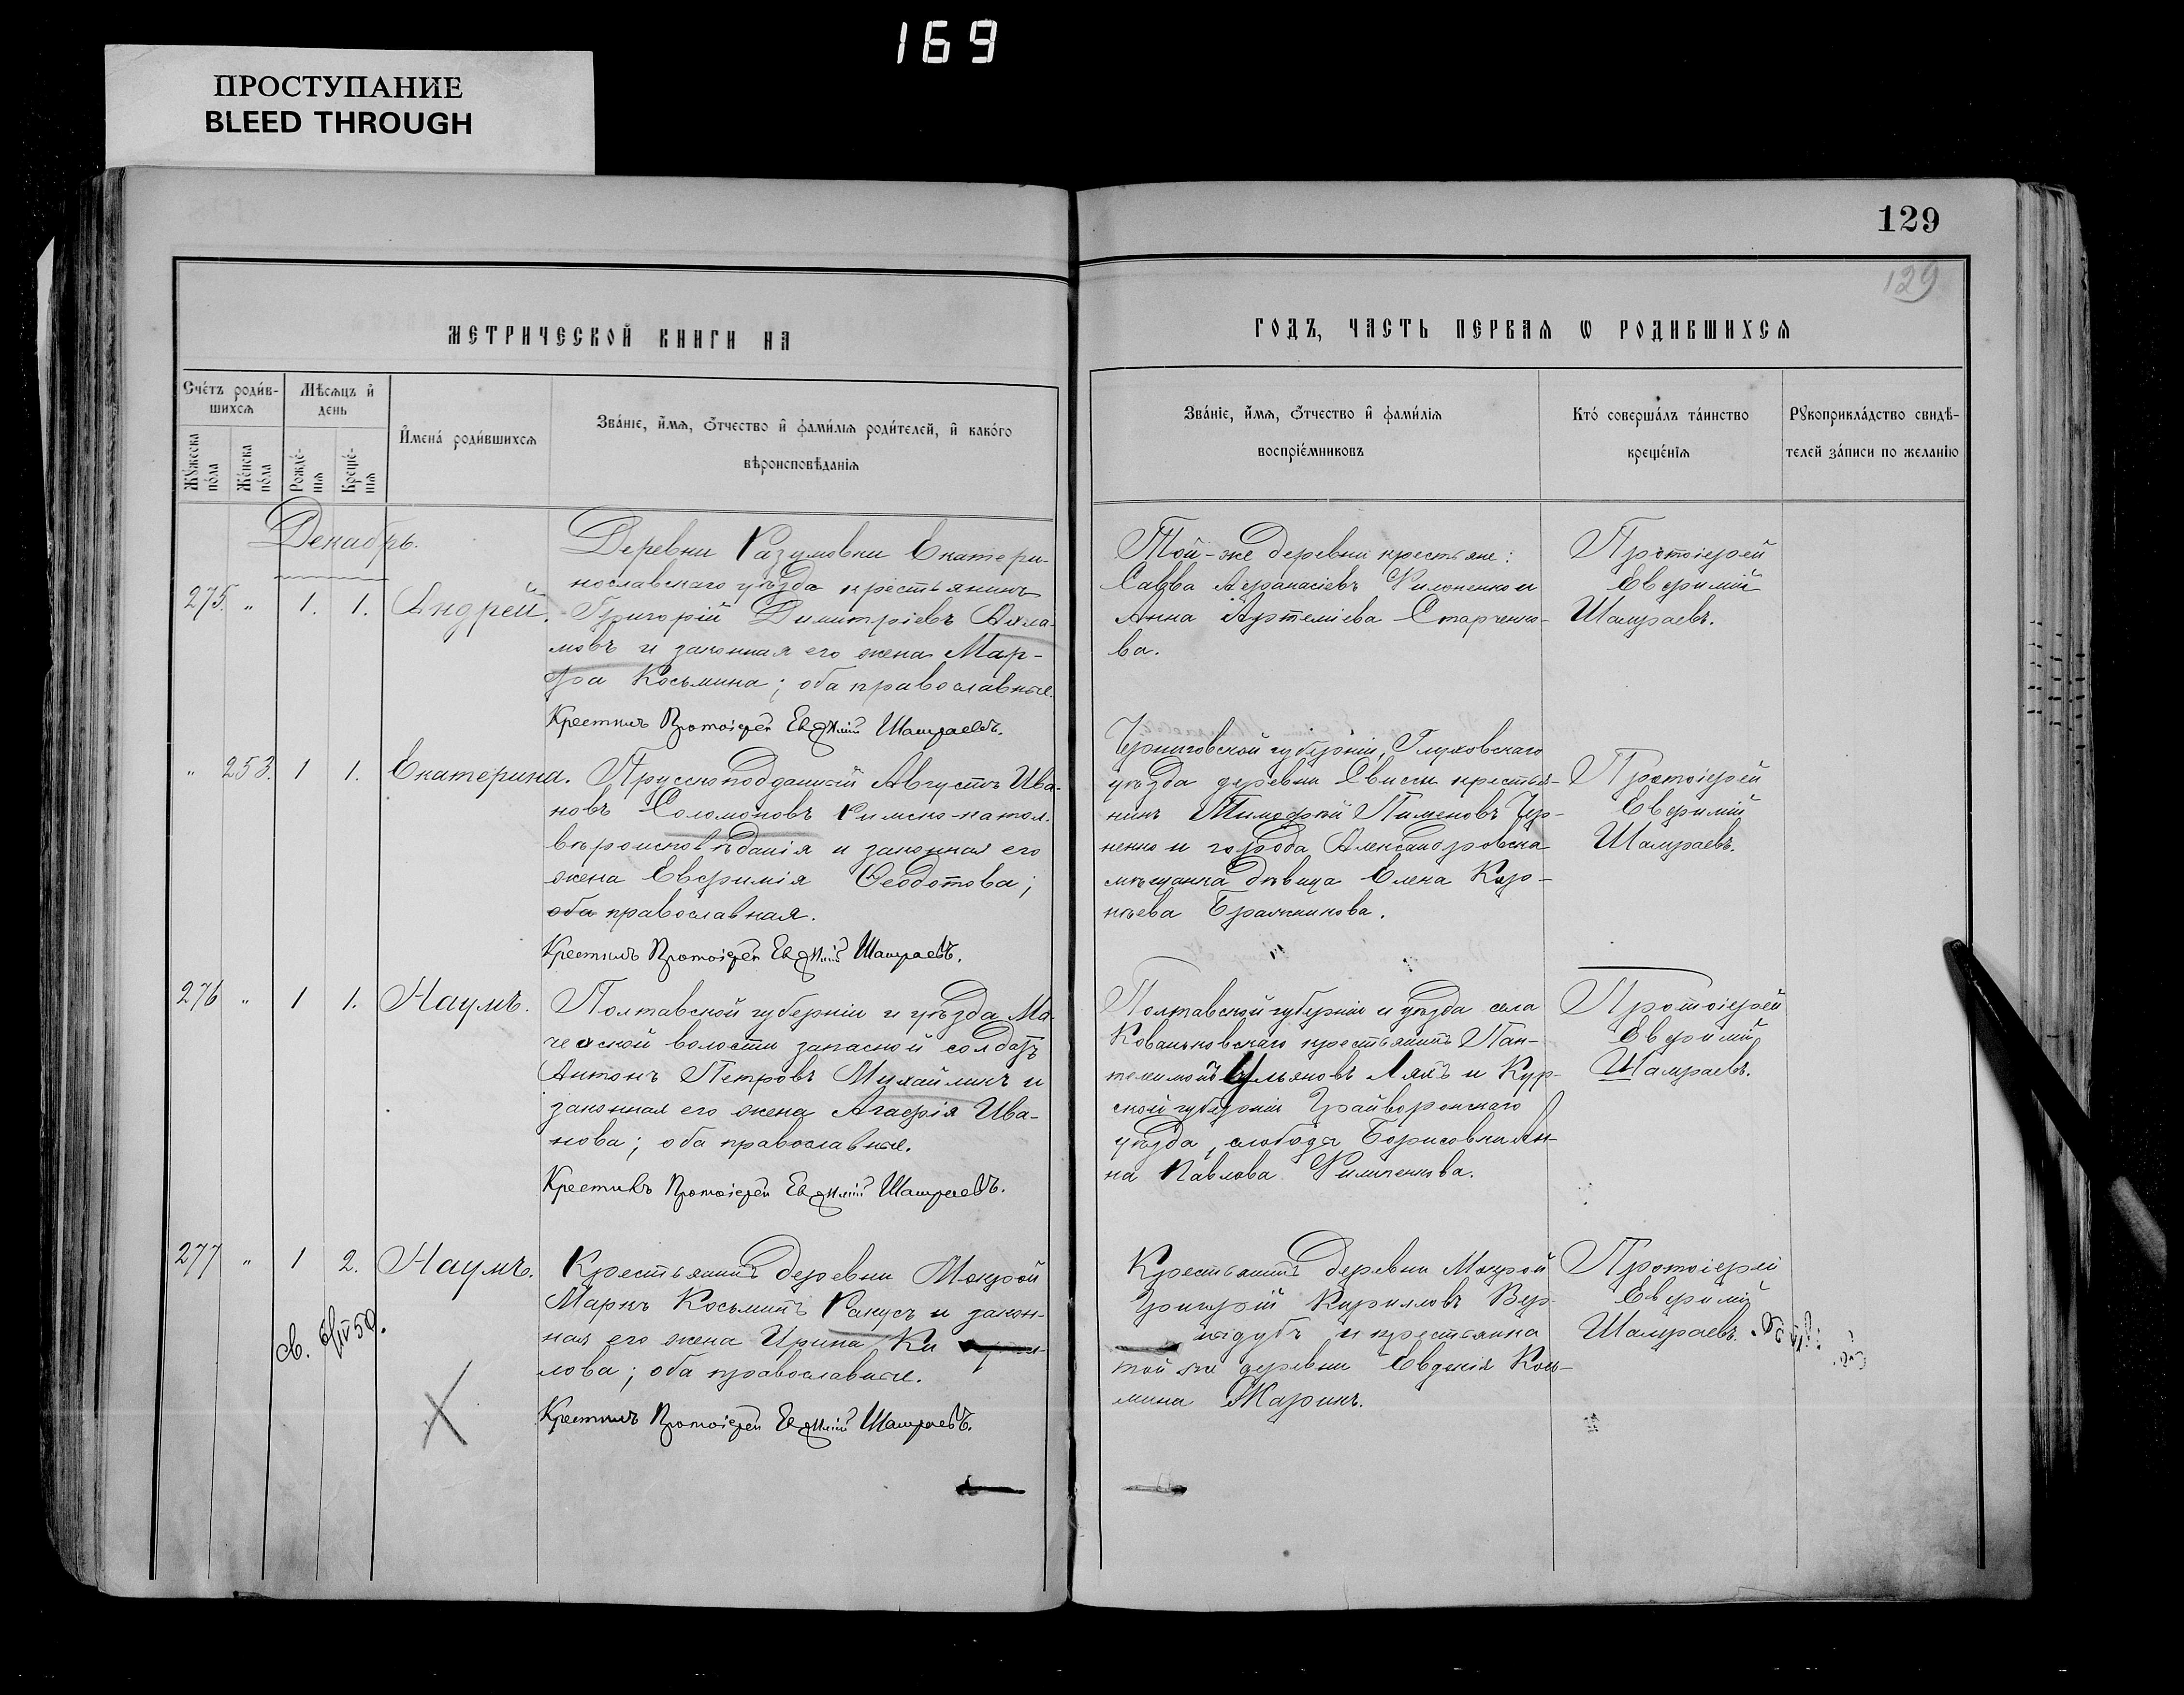 169
ПРОСТУПАНИЕ
BLEED THROUGH
129
129
МЕТРИЧЕСКОЙ КНИГИ НА
ГОДЪ, ЧАСТЬ ПЕРВАЯ Ѡ РОДИВШИХСЯ
Счетъ родив-
шихся
Мѣсяцъ и
день
Мужеска
пола
Женска
пола
Рожде-
нія
Креще-
нія
Имена родившихся
Званіе, имя, отчество и фамилія родителей, и какого
вѣроисповѣданія
Званіе, имя, отчество и фамилія
воспріемниковъ
Кто совершалъ таинство
крещенія
Рукоприкладство свидѣ-
телей записи по желанію
Декабрь.
275. " 1. 1. Андрей.
Деревни Разумовки Екатери-
нославскаго уѣзда крестьянинъ
Григорій Димитріевъ
мовъ и законная его жена Мар-
фа Косьмина; оба православные.
Крестилъ Протоіерей Евфимій Шамраевъ.
Той-же деревни крестьяне:
Савва Афанасіевъ Филоненко и
Анна Артеміева Старченко-
ва.
Протоіерей
Евфимій
Шамраевъ.
" 253. 1 1. Екатерина.
Прусскоподданный Августъ Ива-
новъ Соломоновъ Римско-катол.
вѣроисповѣданія и законная его
жена Евфимія Ѳеодотова;
оба православная.
Крестилъ Протоіерей Евфимій Шамраевъ.
Черниговской губерніи, Глуховскаго
уѣзда деревни Свисы крестья-
нинъ Тимофей Пименовъ Чер-
ненко и города Александровска
мѣщанка дѣвица Елена Кор-
нѣева Бражникова.
Протоіерей
Евфимій
Шамраевъ.
276 " 1 1. Наумъ.
Полтавской губерніи и уѣзда Ма-
чехской волости запасной солдатъ
Антонъ Петровъ Михайликъ и
законная его жена Агафія Ива-
нова; оба православные.
Крестилъ Протоіерей Евфимій Шамраевъ.
Полтавской губерніи и уѣзда села
Ковальковскаго крестьянинъ Пан-
телимонъ Ульяновъ Ляхъ и Кур-
ской губерніи Грайворонскаго
уѣзда, слобода Борисовка Ан-
на Павлова Филиченкова.
Протоіерей
Евфимій
Шамраевъ.
277 " 1 2. Наумъ.
св. 6/IV 59.
Крестьянинъ деревни Мокрой
Маркъ Косьминъ Ракусъ и закон-
ная его жена Ирина Ки
лова; оба православные.
Крестилъ Протоіерей Евфимій Шамраевъ.
Крестьянинъ деревни Мокрой
Григорій Кириловъ Вер-
нидубъ и крестьянка
той же деревни Евдокія Кось-
мина Жаринъ.
Протоіерей
Евфимій
Шамраевъ.